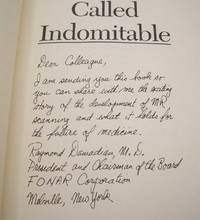 Called
Indomitable
Dear Colleague,
I am sending you this book so
you can share with me the exciting
story of the development of MR
scanning and what it holds for
the future of medicine.
Raymond Damadian, M.D.
President and Chairman of the Board
FONAR Corporation
Melville, New York